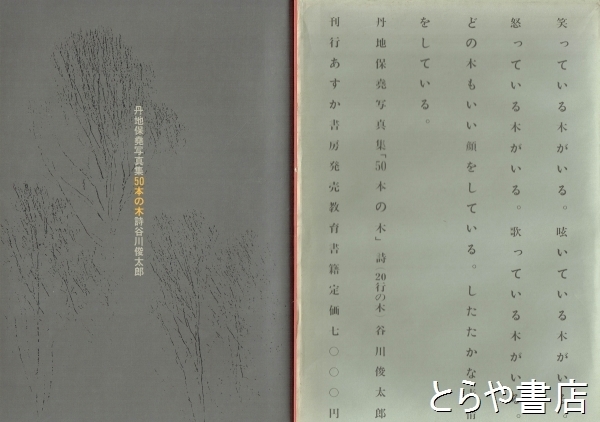 丹地保堯写真集50本の木詩谷川俊太郎
笑っている木がいる。呟いている木がい
怒っている木がいる。歌っている木がい。
どの木もいい顔をしている。したたかな
をしている。
丹地保堯写真集「50本の木」詩「20行の木」谷川俊太郎
刊行あすか書房発売教育書籍定価七〇〇〇円
とらや書店